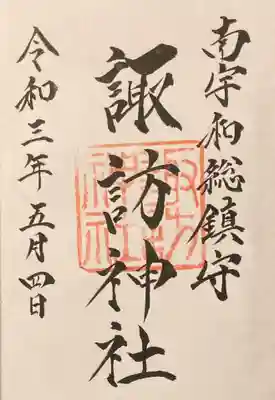 南宇和総鎮守
諏訪神社
令和三年五月四日